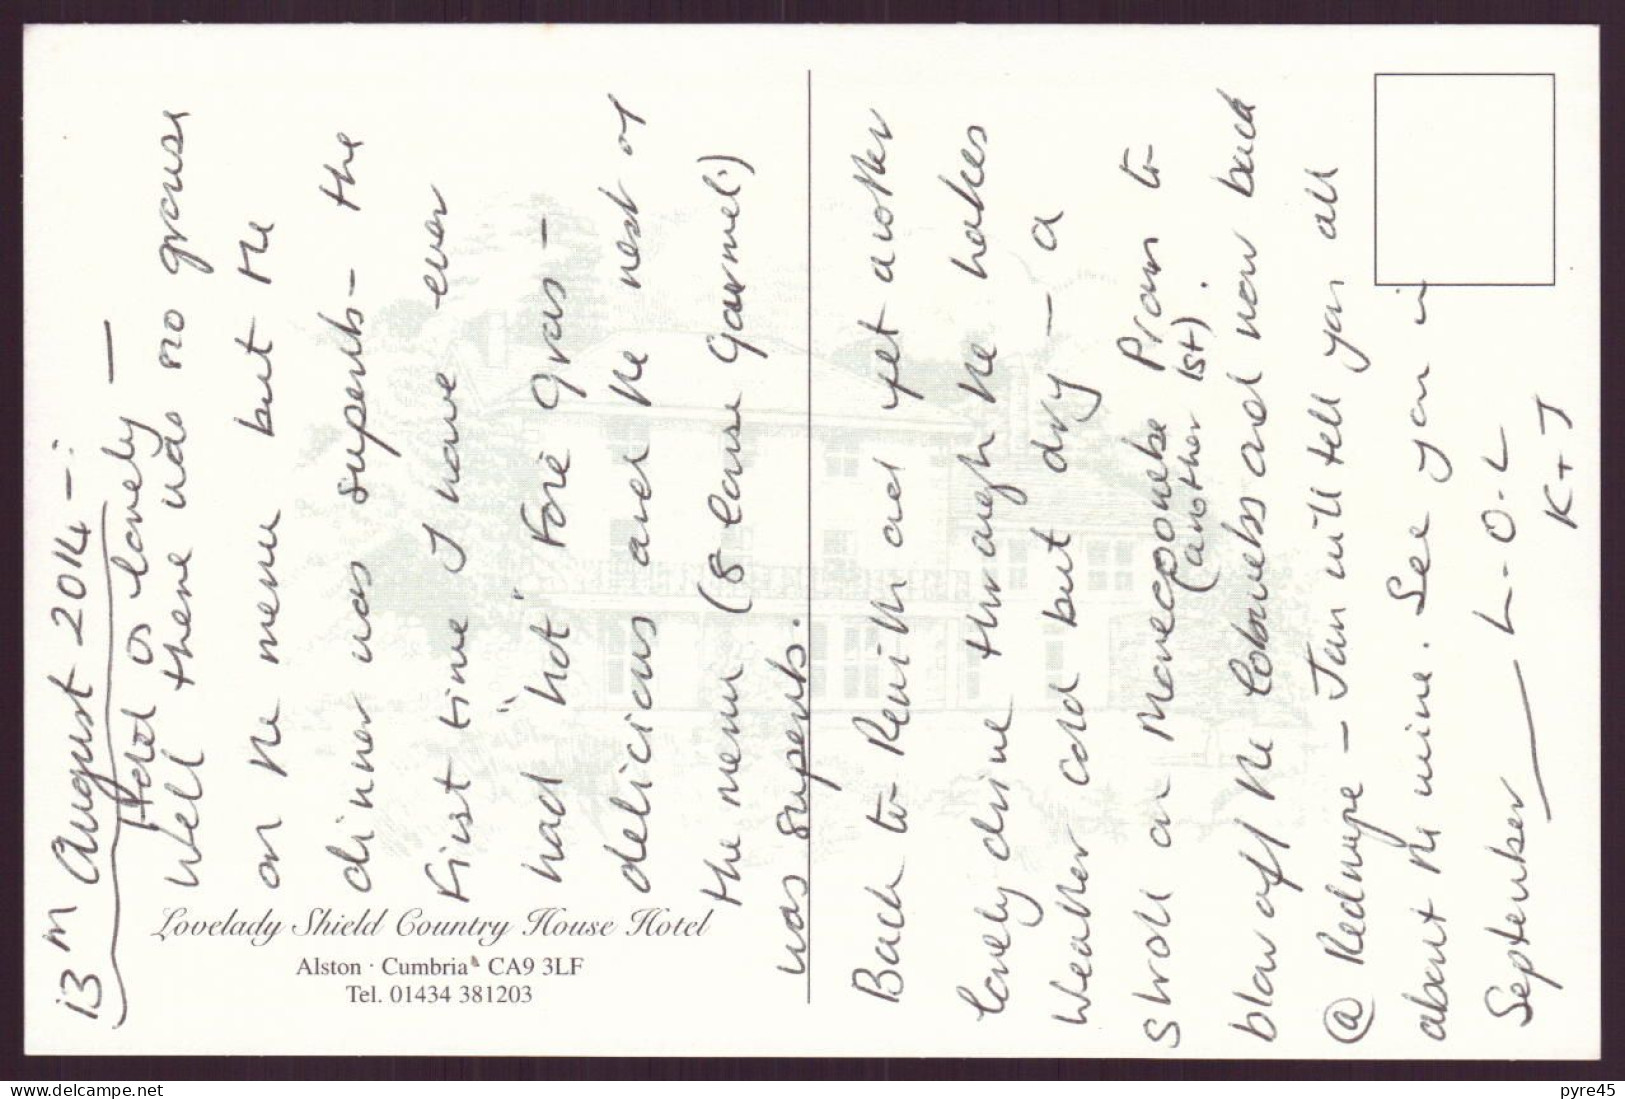 13th August 2014 -:
Hotel is lovely —
Well there was no grouse
on the menu but the
dinner was superb - the
first time I have ever
had "hot" Foie Gras -
delicious and the rest of
the menu (8 course Gourmet!)
was superb.
Back to Penrith and yet another
lovely drive through the lakes
Weather cold but dry - a
stroll on Morecombe Prom to
(another 1st).
blow off the cobwebs and now back
@ Rednupe - Jan will tell you all
about the mine. See you in
September —— L-O-L
K+J
Lovelady Shield Country House Hotel
Alston · Cumbria · CA9 3LF
Tel. 01434 381203
delcampe.net
pyre45